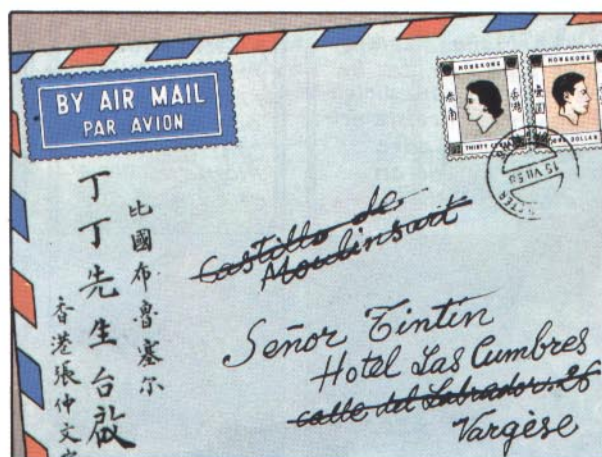 BY AIR MAIL
PAR AVION
HONGKONG
叁角
香港
THIRTY
HONGKONG
壹圓
DOLLAR
15 VII 58
比國布魯塞尔
丁丁先生台啟
香港張仲文
Castillo de
Moulinsart
Señor Tintín
Hotel Las Cumbres
calle del Labrador. 26
Vargèse